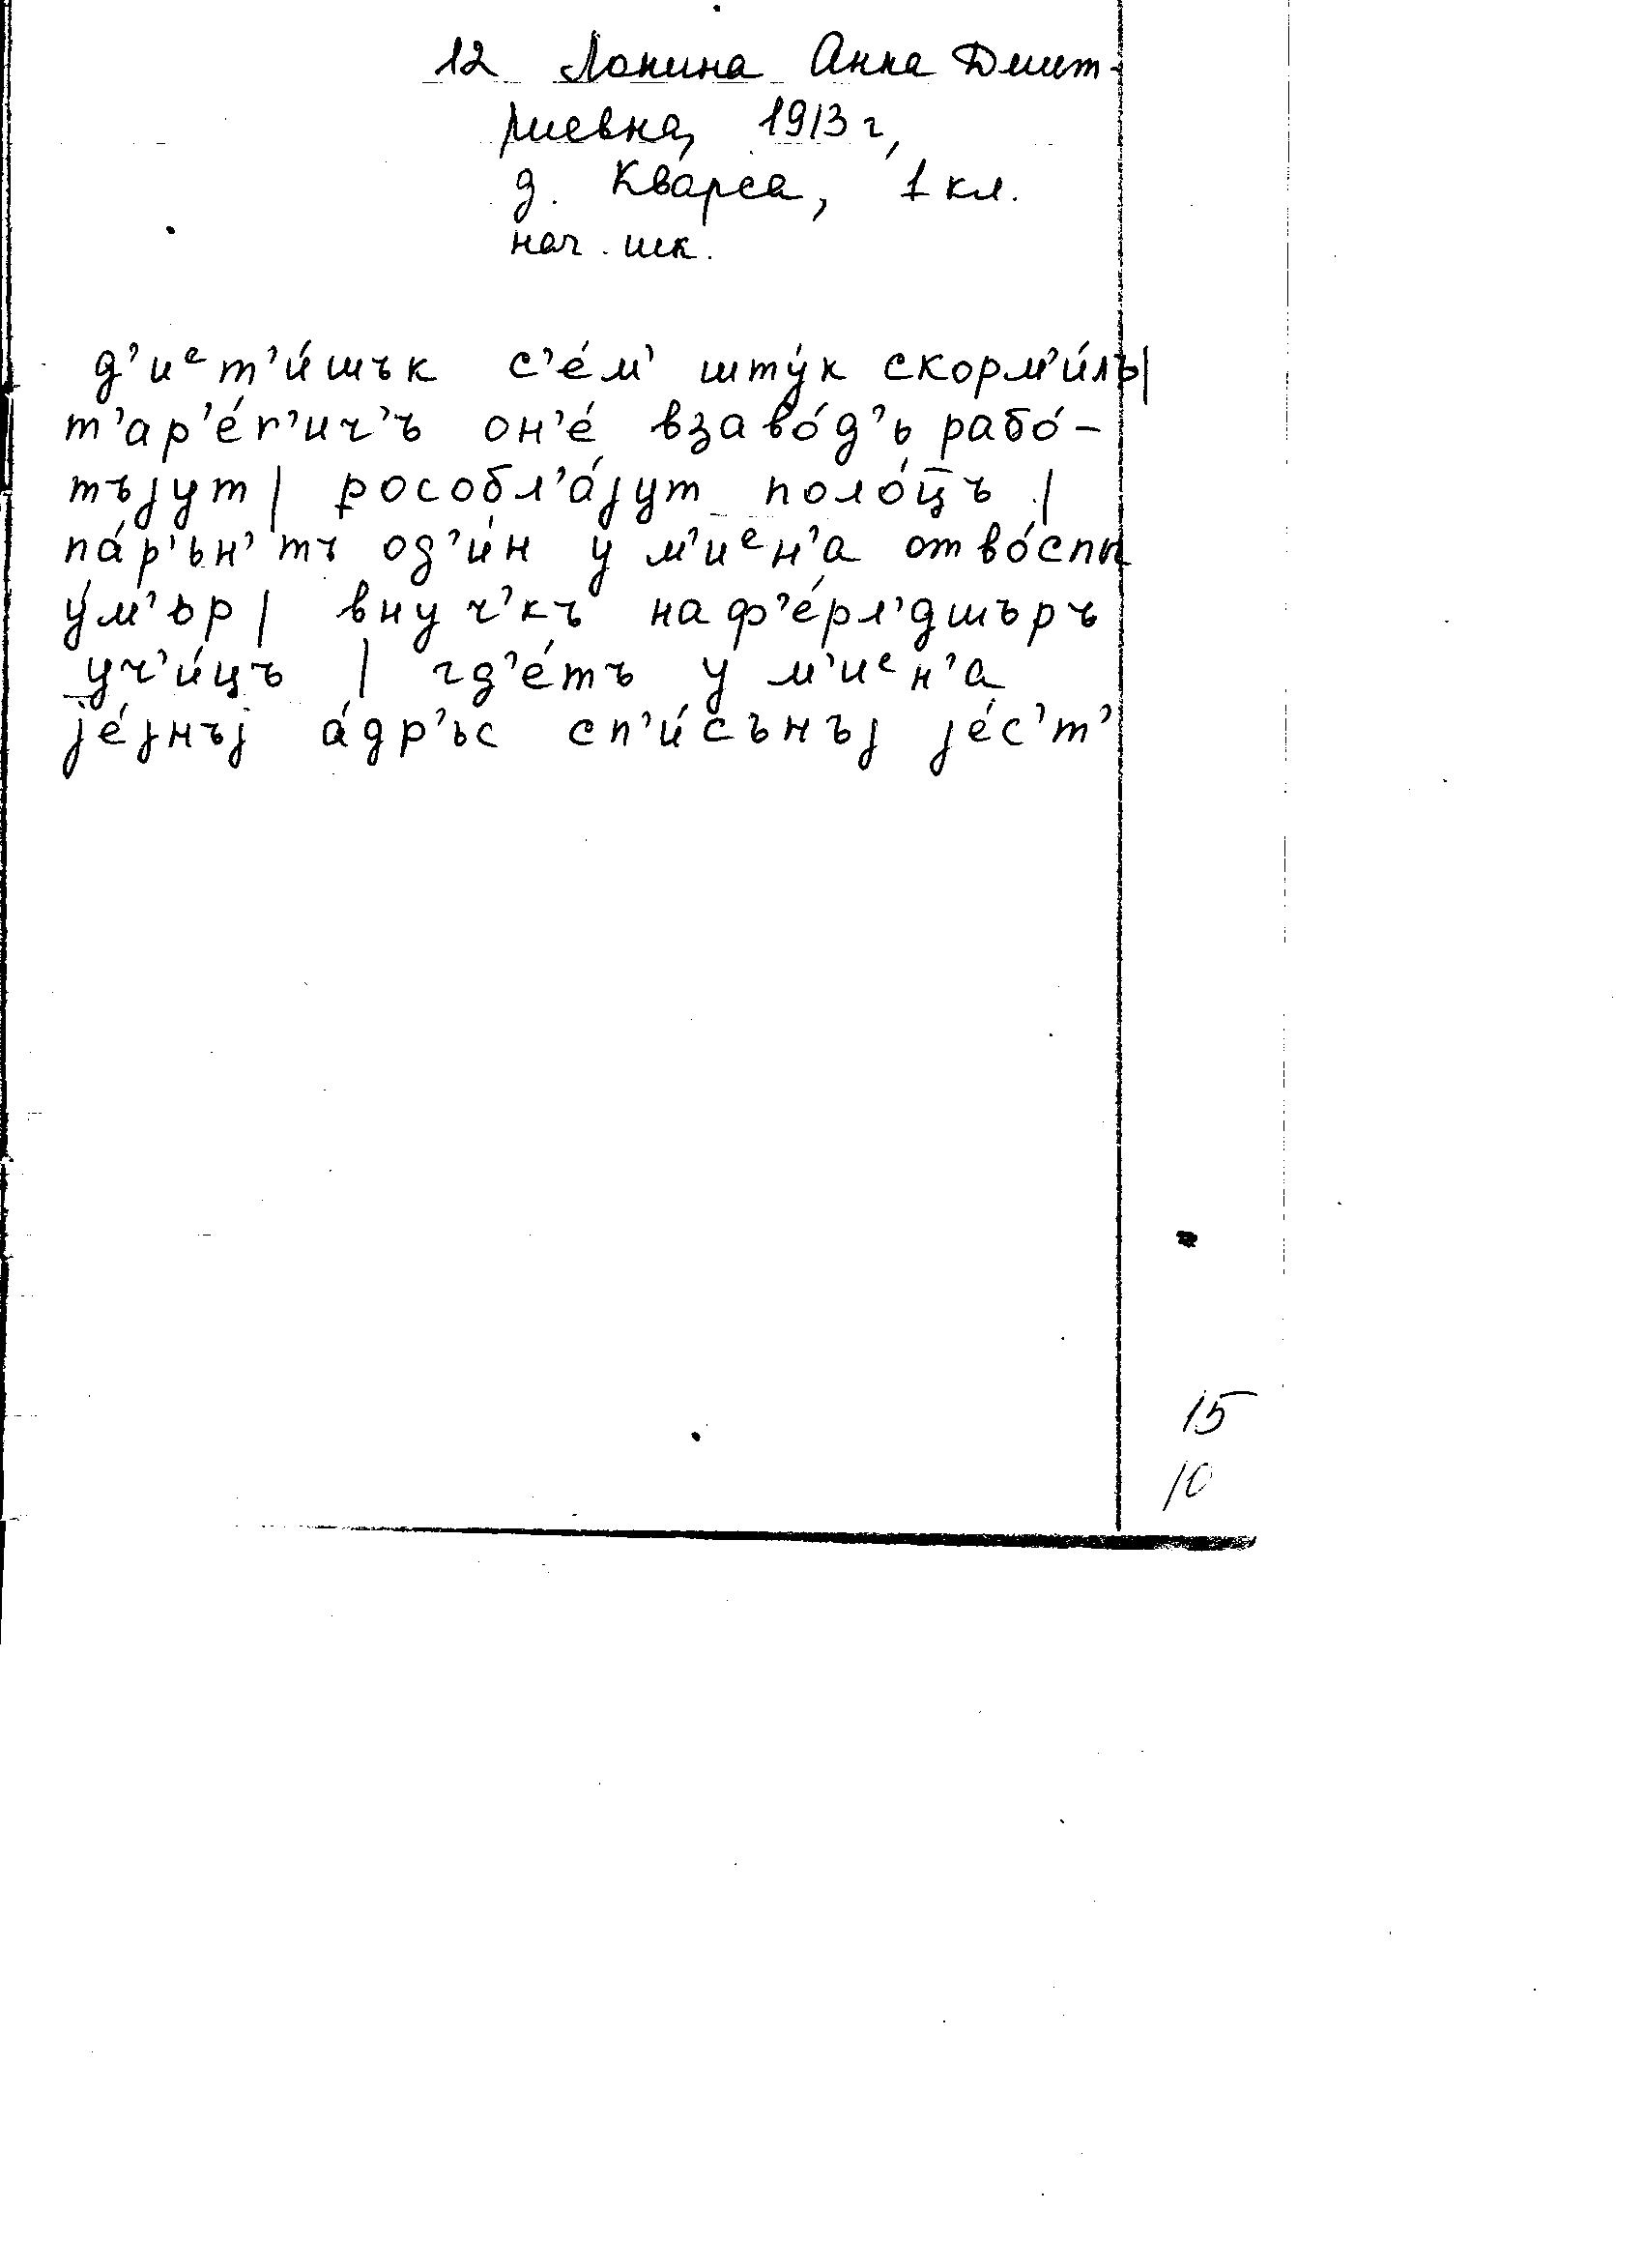 12 Лонина Анна Дмит-
риевна, 1913 г,
д. Ква́рса, 1 кл.
нач. шк.
д’иᵉт’и́шък с’е́м’ шту́к скорм’и́лъ|
т’ар’е́г’ич’ъ он’е́ взаво́д’ь рабо́-
тъjут | рособл’а́jут поло́ц̅ъ |
па́р’ьн’тъ од’и́н у м’иᵉн’а отво́спы
у́м’ьр | внуч’къ наф’е́рл’дшъръ
уч’и́цъ | гд’е́тъ у м’иᵉн’а
jе́jнъj а́др’ьс сп’и́сънъj jе́с’т’
15
10